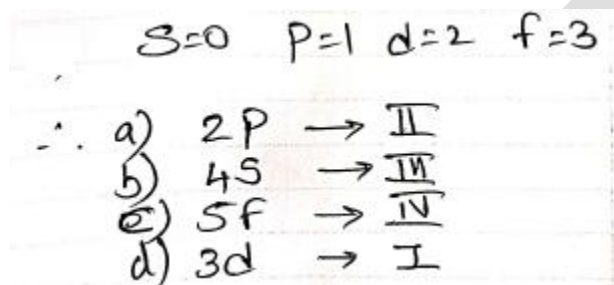 S=0 P=1 d=2 f=3
∴ a) 2P → II
b) 4S → III
c) 5f → IV
d) 3d → I